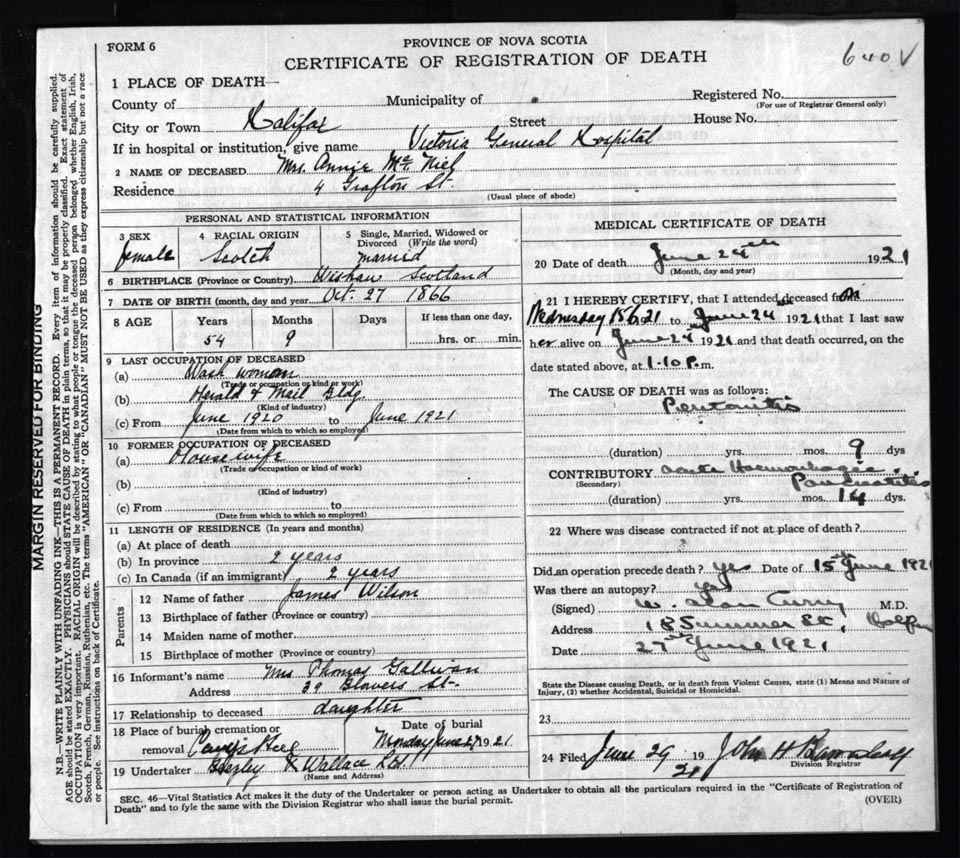 FORM 6
PROVINCE OF NOVA SCOTIA
CERTIFICATE OF REGISTRATION OF DEATH
640 V
1 PLACE OF DEATH
County of Municipality of Registered No.
(For use of Registrar General only)
City or Town Halifax Street House No.
If in hospital or institution, give name Victoria General Hospital
2 NAME OF DECEASED Mrs. Annie Mc Niel
Residence 4 Grafton St.
(Usual place of abode)
PERSONAL AND STATISTICAL INFORMATION
3 SEX 4 RACIAL ORIGIN 5 Single, Married, Widowed or
Divorced (Write the word)
female Scotch married
6 BIRTHPLACE (Province or Country) Wishaw Scotland
7 DATE OF BIRTH (month, day and year) Oct. 27 1866
8 AGE Years Months Days If less than one day,
54 9 hrs. or min.
9 LAST OCCUPATION OF DECEASED
(a) Wash woman
(Trade or occupation or kind or work)
(b) Herald & Mail Bldg.
(Kind of industry)
(c) From June 1920 to June 1921
(Date from which to which so employed)
10 FORMER OCCUPATION OF DECEASED
(a) Housewife
(Trade or occupation or kind of work)
(b)
(Kind of industry)
(c) From to
(Date from which to which so employed)
11 LENGTH OF RESIDENCE (In years and months)
(a) At place of death
(b) In province 2 years
(c) In Canada (if an immigrant) 2 years
Parents
12 Name of father James Wilson
13 Birthplace of father (Province or country)
14 Maiden name of mother
15 Birthplace of mother (Province or country)
16 Informant's name Mrs Thomas Gallivan
Address 39 Glovers St.
17 Relationship to deceased daughter
18 Place of burial, cremation or Date of burial
removal Camp Hill Monday June 27 1921
19 Undertaker & Wallace
(Name and Address)
MEDICAL CERTIFICATE OF DEATH
20 Date of death June 24th 1921
(Month, day and year)
21 I HEREBY CERTIFY, that I attended deceased from on
Wednesday 15 6 21 to June 24 1921 that I last saw
her alive on June 24 1921 and that death occurred, on the
date stated above, at 1.10 P.m.
The CAUSE OF DEATH was as follows:
Peritonitis
(duration) yrs. mos. 9 dys
CONTRIBUTORY acute Haemorrhagic
(Secondary) Pancreatitis
(duration) yrs. mos. 14 dys.
22 Where was disease contracted if not at place of death?
Did an operation precede death? Yes Date of 15th June 1921
Was there an autopsy? Yes
(Signed) W. Alan Curry M.D.
Address 18 Summer St, Halifax
Date 27th June 1921
State the Disease causing Death, or in death from Violent Causes, state (1) Means and Nature of
Injury, (2) whether Accidental, Suicidal or Homicidal.
23
24 Filed June 29 1921 John H
Division Registrar
SEC. 46—Vital Statistics Act makes it the duty of the Undertaker or person acting as Undertaker to obtain all the particulars required in the "Certificate of Registration of
Death" and to fyle the same with the Division Registrar who shall issue the burial permit.
(OVER)
MARGIN RESERVED FOR BINDING
N.B.—WRITE PLAINLY WITH UNFADING INK—THIS IS A PERMANENT RECORD. Every item of information should be carefully supplied.
AGE should be stated EXACTLY. PHYSICIANS should STATE CAUSE OF DEATH in plain terms, so that it may be properly classified. Exact statement of
OCCUPATION is very important. RACIAL ORIGIN will be described by stating to what people or tongue the deceased person belonged whether English, Irish,
Scotch, French, German, Russian, Ruthenian, etc. The terms "AMERICAN" OR "CANADIAN" MUST NOT BE USED as they express citizenship but not a race
or people. See instructions on back of Certificate.